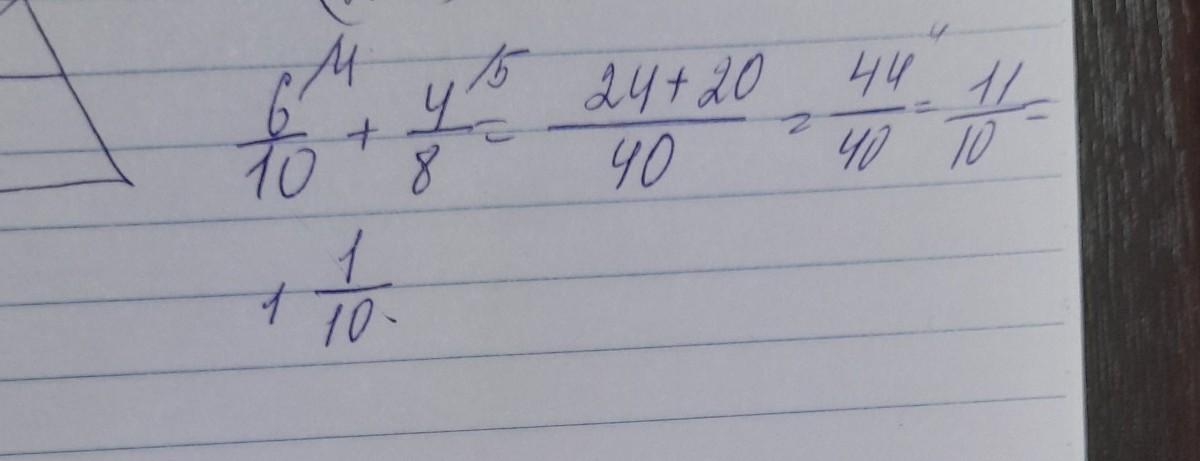 6/10 /4 + 4/8 /5 = (24+20)/40 = 44/40 4 = 11/10 =
1 1/10.